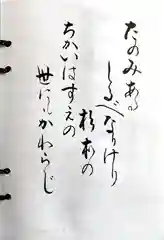 たのみある
しるべなりけり
杉村の
ちかいはすえの
世にもかわらじ